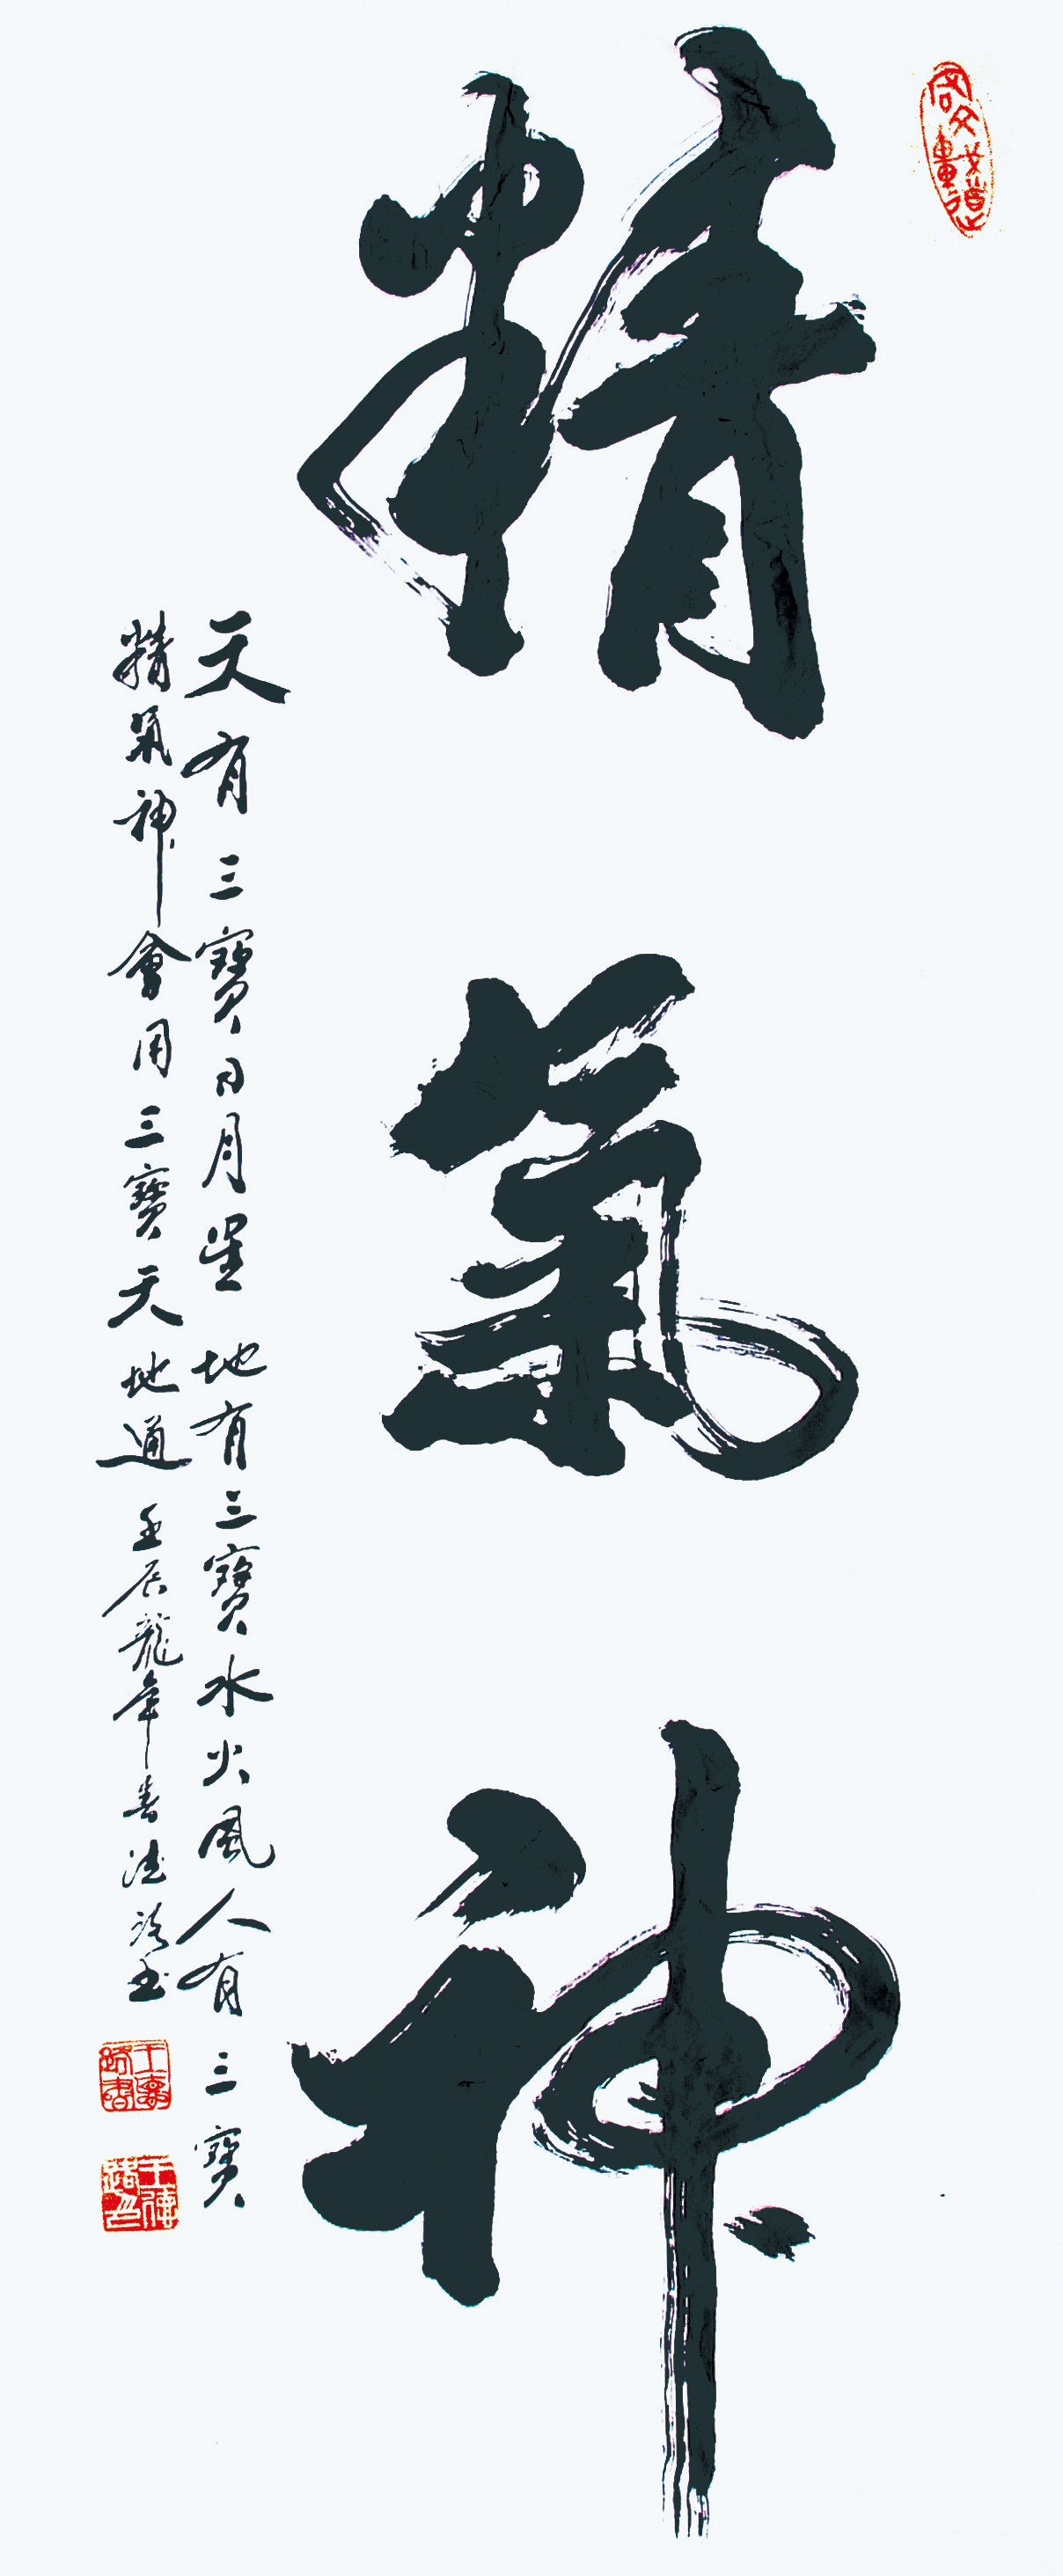 精氣神
天有三寶日月星地有三寶水火風人有三寶
精氣神會用三寶天地通壬辰龍年春法